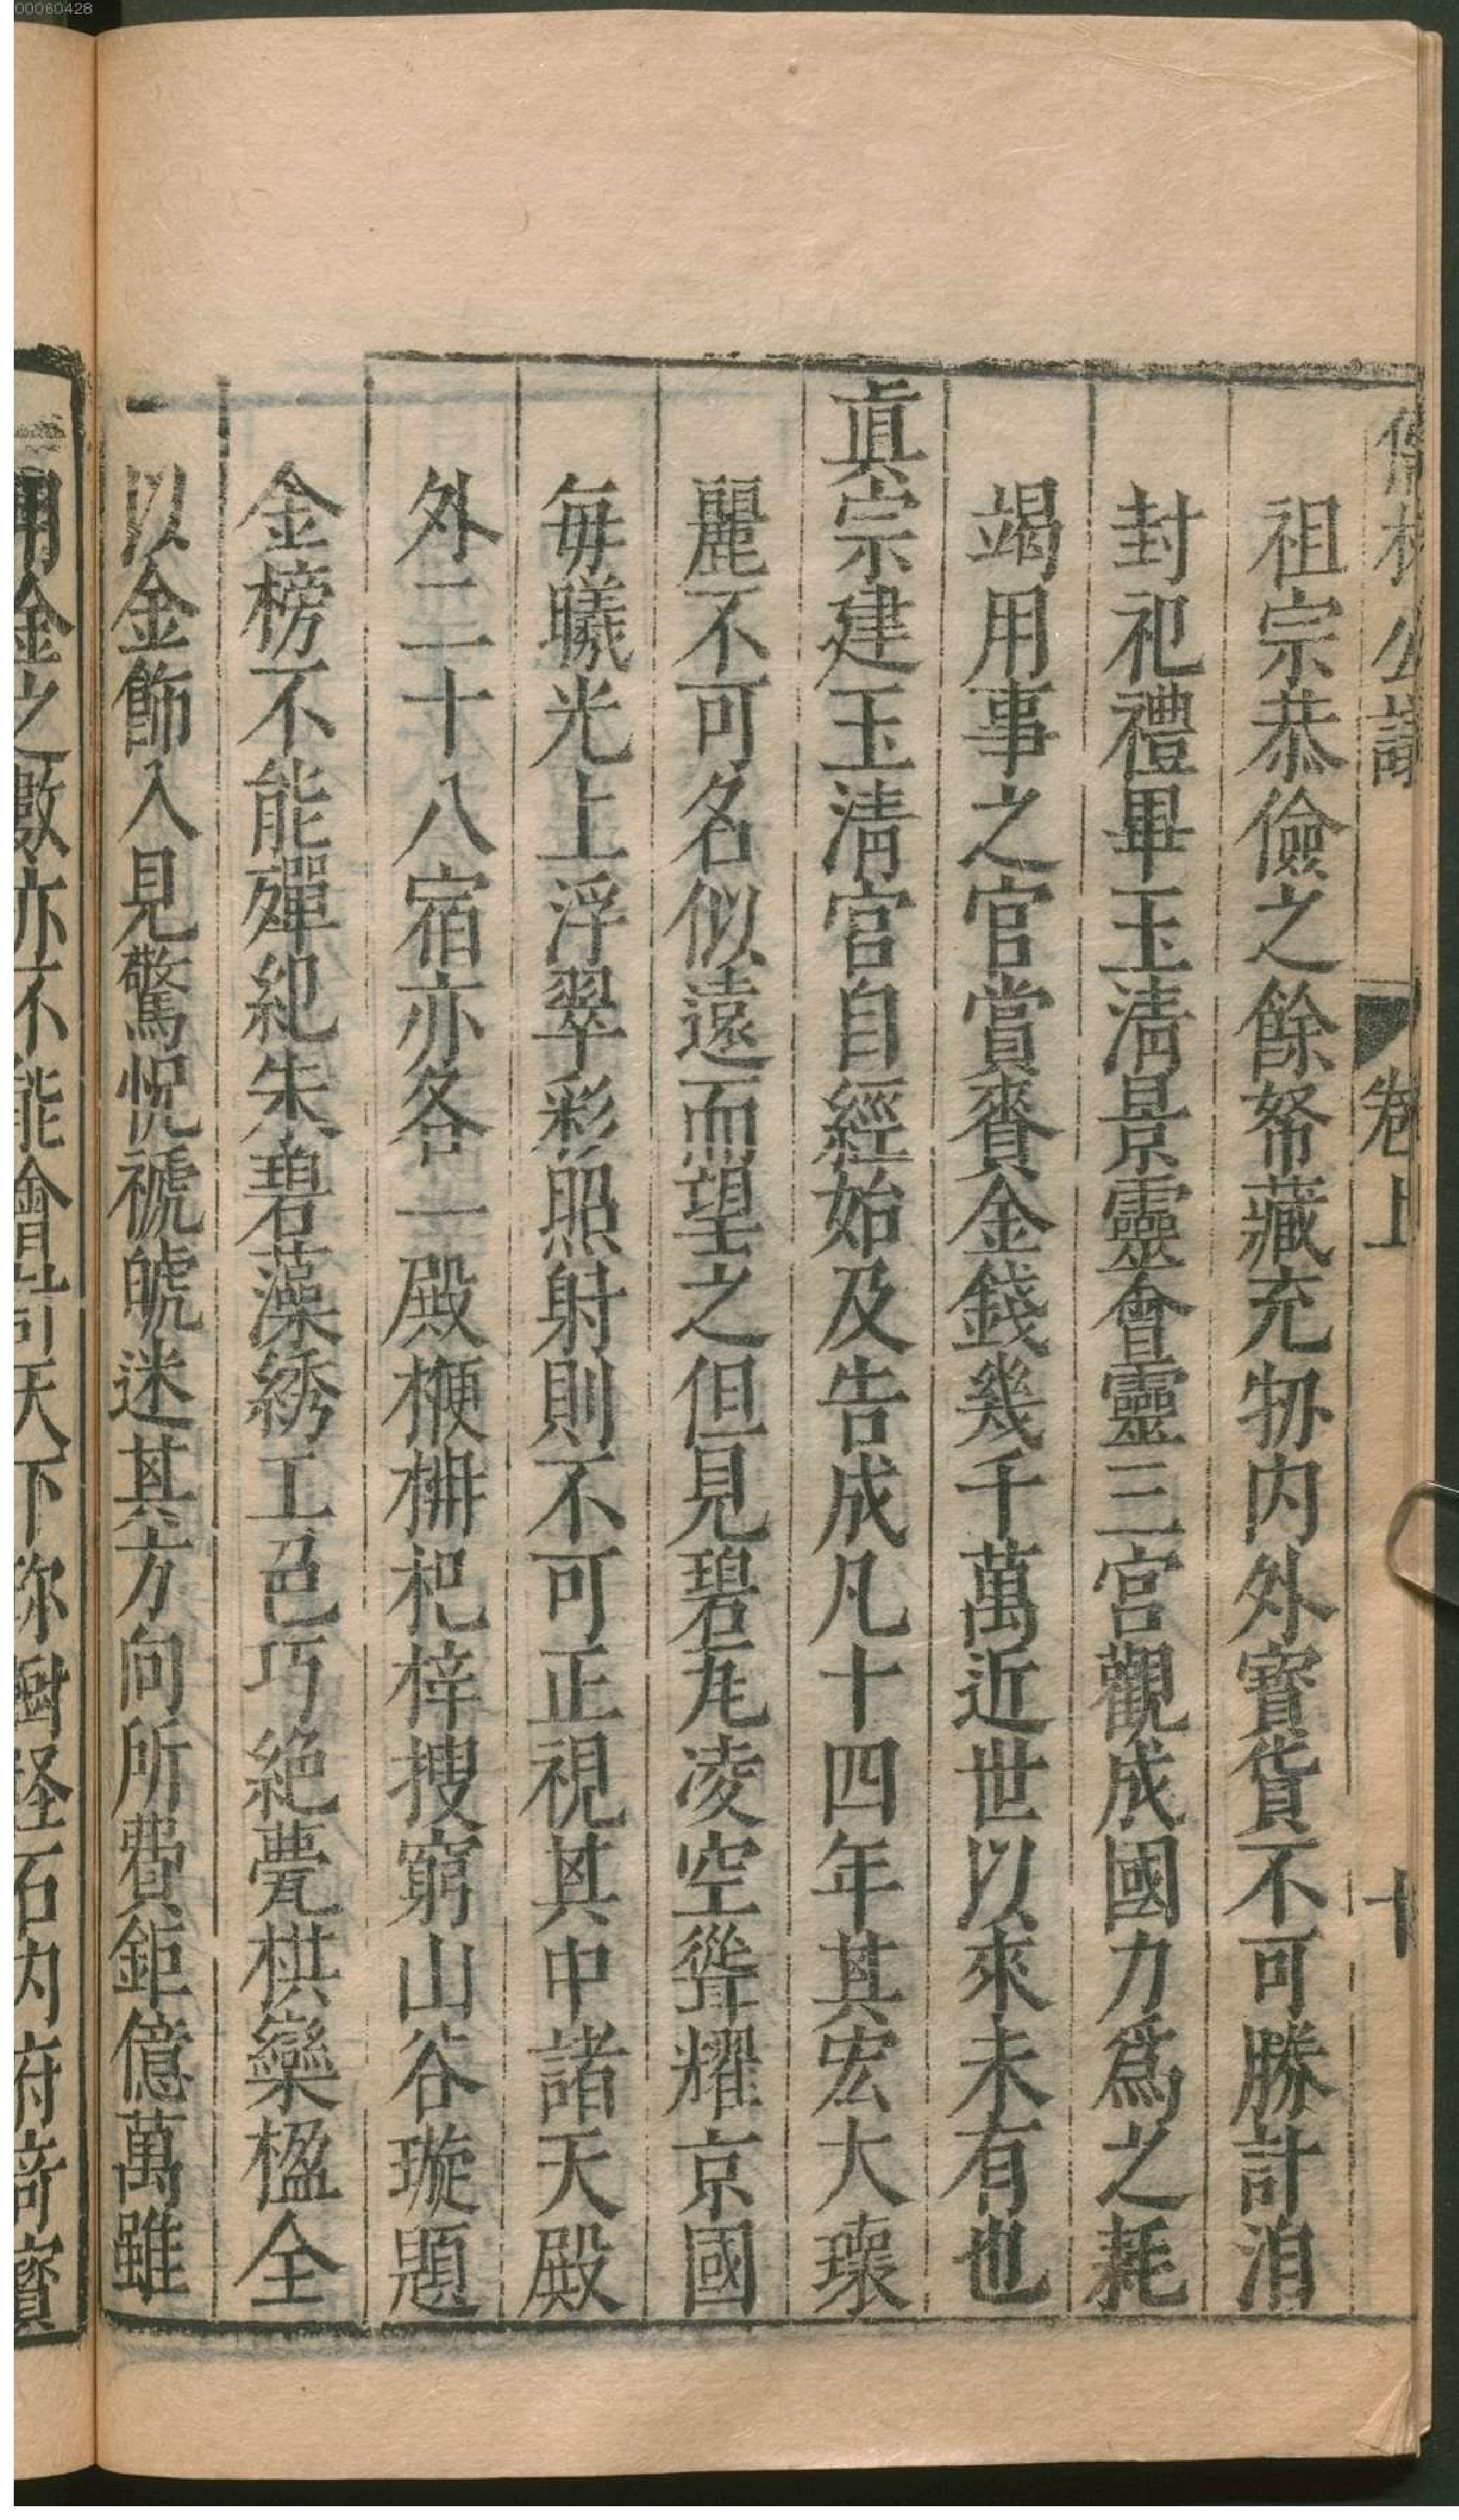 00060428
儒林公議 卷上 十
祖宗恭儉之餘帑藏充牣内外寶貨不可勝計洎
封祀禮畢玉清景靈會靈三宮觀成國力爲之耗
竭用事之官賞賚金錢幾千萬近世以來未有也
真宗建玉清宫自經始及告成凡十四年其宏大瓌
麗不可名似遠而望之但見碧瓦凌空聳耀京國
每曦光上浮翠彩照射則不可正視其中諸天殿
外二十八宿亦各一殿楩楠杞梓搜窮山谷璇題
金榜不能殫紀朱碧藻綉工色巧絶甍栱欒楹全
以金飾入見驚怳褫䰟迷其方向所費鉅億萬雖
用金之數亦不能會計天下珍樹怪石内府竒寳